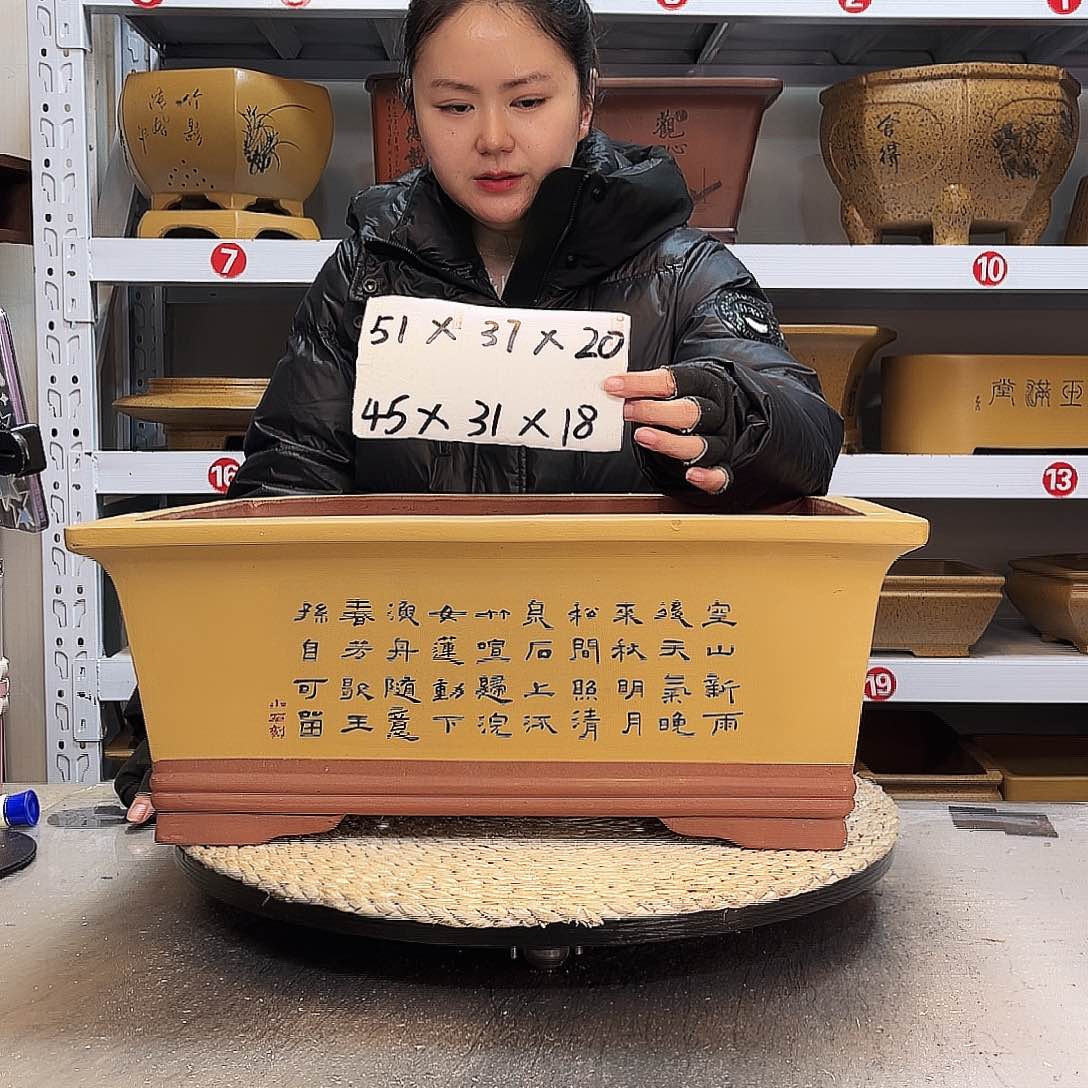 51 X 37 X 20
45 X 31 X 18
空山新雨
後天氣晚
來秋明月
松間照清
泉石上流
竹喧歸浣
女蓮動下
漁舟隨意
春芳歇王
孫自可留
小石刻
竹影
觀心
合得
玉滿堂
7
10
16
13
19